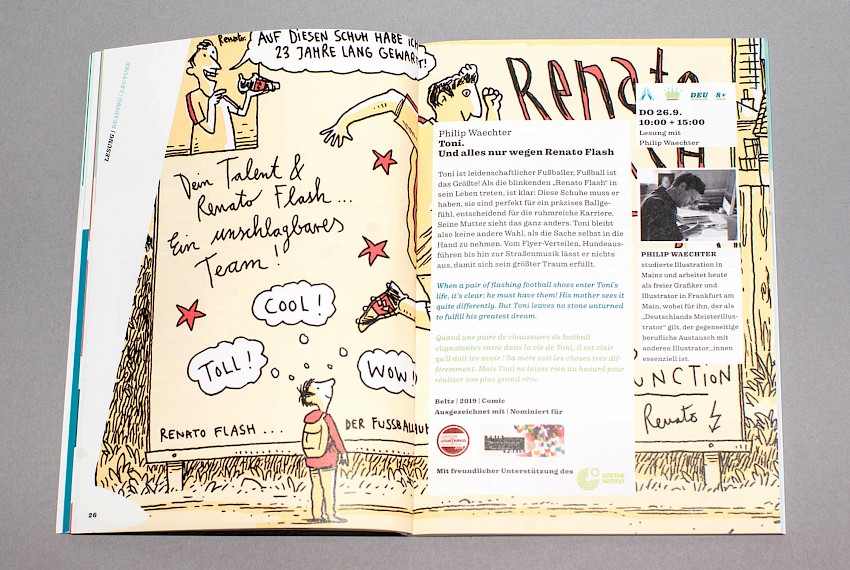 LESUNG | READING | LECTURE
Renato:
AUF DIESEN SCHUH HABE ICH
23 JAHRE LANG GEWARTET!
Dein Talent &
Renato Flash ...
Ein unschlagbares
Team!
COOL!
TOLL!
WOW!
RENATO FLASH ...
DER FUSSBALL
26
Renato
Philip Waechter
Toni.
Und alles nur wegen Renato Flash
Toni ist leidenschaftlicher Fußballer, Fußball ist
das Größte! Als die blinkenden „Renato Flash“ in
sein Leben treten, ist klar: Diese Schuhe muss er
haben, sie sind perfekt für ein präzises Ballge-
fühl, entscheidend für die ruhmreiche Karriere.
Seine Mutter sieht das ganz anders. Toni bleibt
also keine andere Wahl, als die Sache selbst in die
Hand zu nehmen. Vom Flyer-Verteilen, Hundeaus-
führen bis hin zur Straßenmusik lässt er nichts
aus, damit sich sein größter Traum erfüllt.
When a pair of flashing football shoes enter Toni's
life, it's clear: he must have them! His mother sees it
quite differently. But Toni leaves no stone unturned
to fulfill his greatest dream.
Quand une paire de chaussures de football
clignotantes entre dans la vie de Toni, il est clair
qu'il doit les avoir ! Sa mère voit les choses très dif-
féremment. Mais Toni ne laisse rien au hazard pour
réaliser son plus grand rêve.
Beltz | 2019 | Comic
Ausgezeichnet mit | Nominiert für
Mit freundlicher Unterstützung des
GOETHE
INSTITUT
DEU 8+
DO 26.9.
10:00 + 15:00
Lesung mit
Philip Waechter
PHILIP WAECHTER
studierte Illustration in
Mainz und arbeitet heute
als freier Grafiker und
Illustrator in Frankfurt am
Main, wobei für ihn, der als
„Deutschlands Meisterillus-
trator“ gilt, der gegenseitige
berufliche Austausch mit
anderen Illustrator_innen
essenziell ist.
UNCTION
Renato